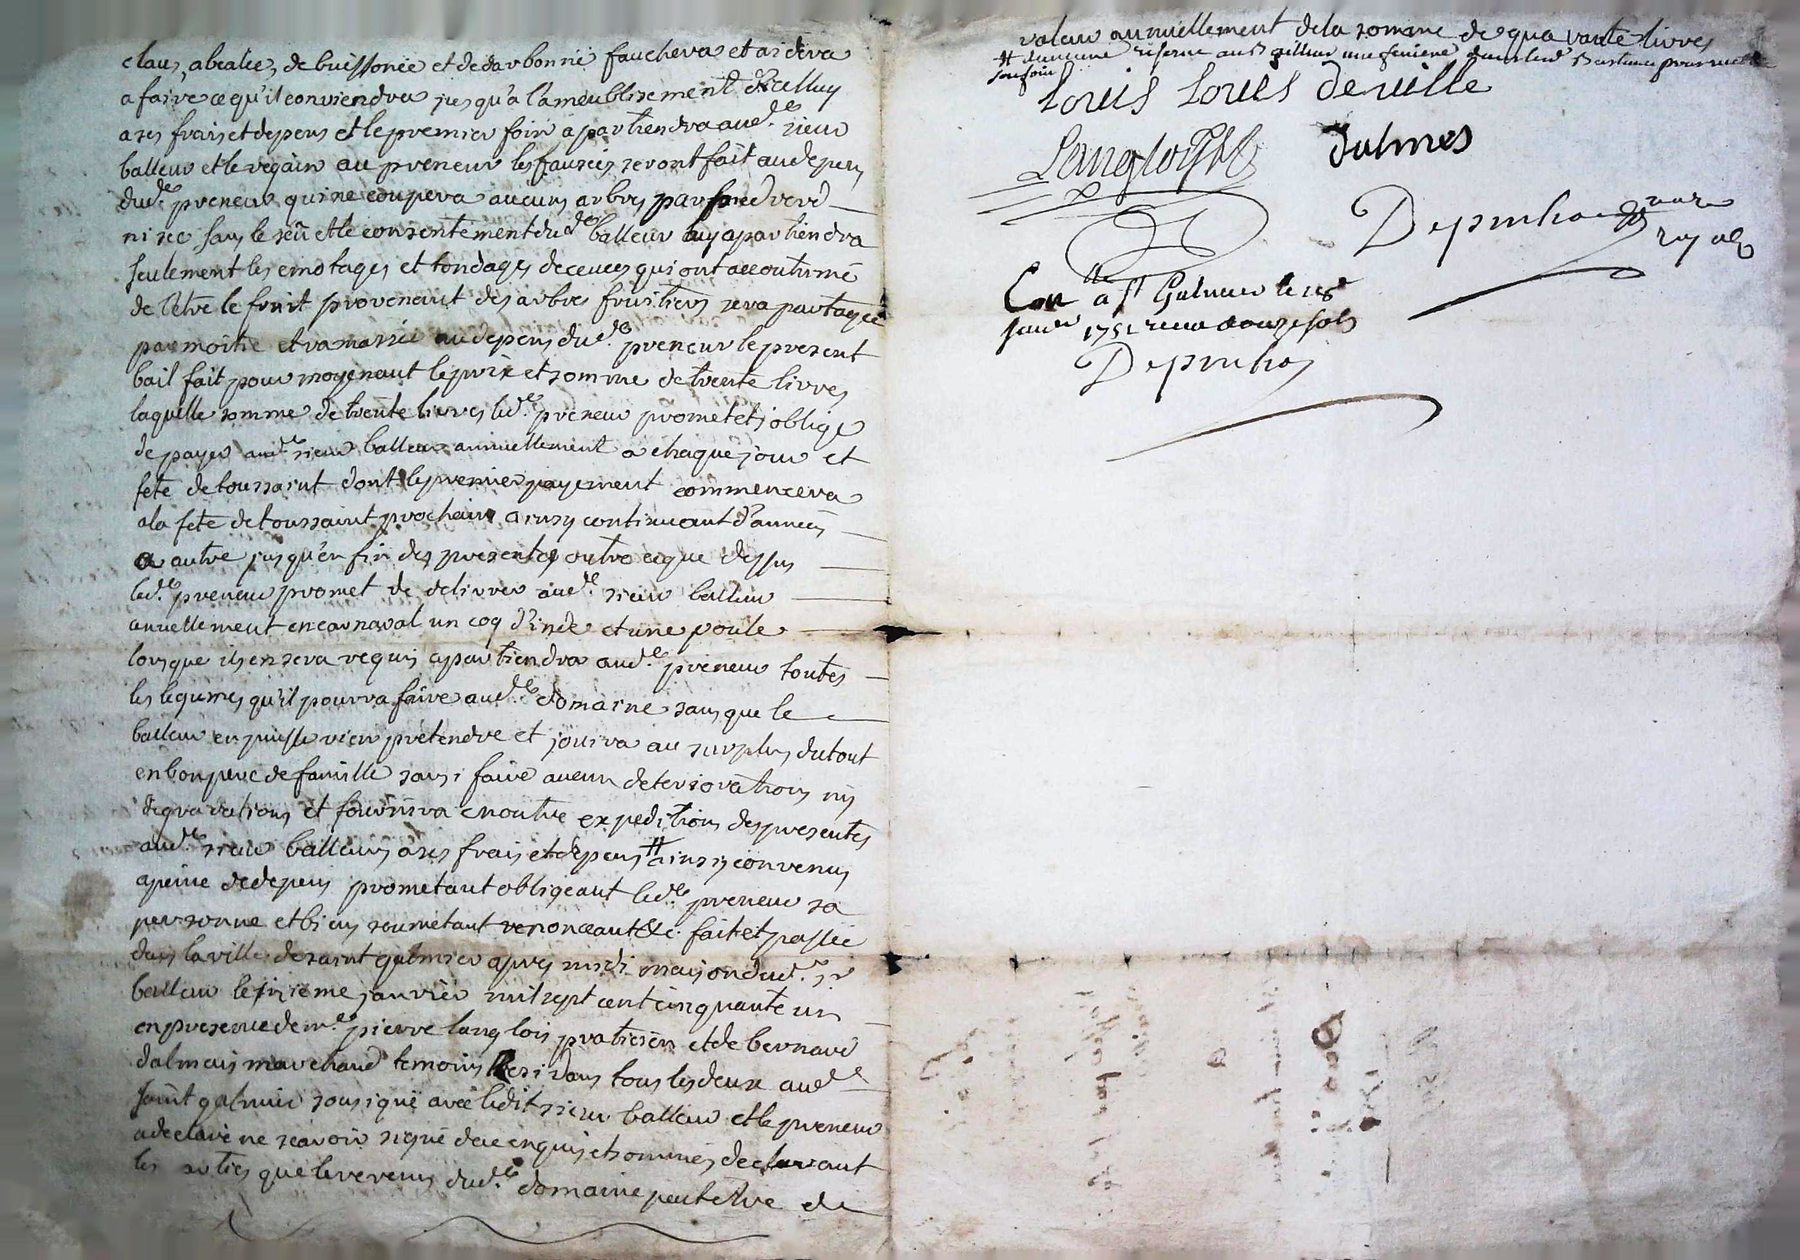 claus, abealies, de buissonée et dedarbonné fauchera et aidera
a faire ce qu'il conviendra jusqu'a l'ameublisement dicelluy
a ses frais et depens et le premier foin apartiendra aud.t sieur
balleur et le regain au preneur les fauries seront fait au depens
dud.t preneur qui ne coupera aucuns arbres par pied verd
ni sec sans le sçû et le consentement dud.t balleur luy apartiendra
seulement les emotages et tondages de ceux qui ont accoutumé
de l'etre le fruit provenant des arbres fruitiers sera partagée
par moitié et ramassée au depens dud.t preneur le present
bail fait pour moyenant le prix et somme de trente livres
laquelle somme de trente livres led.t preneur promet et s'oblige
de payer aud.t sieur balleur annuellement a chaque jour et
fete de toussaint dont le premier payement commencera
a la fete de toussaint prochain ainsy continuant d'années
a autre jusqu'en fin des presentes outre ce que dessus
led.t preneur promet de delivrer aud.t sieur balleur
anuellement en carnaval un coq d'inde et une poule
lorsque il en sera requis apartiendra aud.t preneur toutes
les legumes qu'il pourra faire aud.t domaine sans que le
balleur en puisse rien prétendre et jouira au surplus du tout
en bon pere de famille sans i faire aucun deteriorations ny
degradations et fournira en outre expeditions des presentes
aud.t sieur balleurs a ses frais et depens # ainsy convenus
a peine de depens prometant obligeant led.t preneur sa
personne et biens soumetant renonceant &c. fait et passée
dans la ville de saint galmier apres midi maison dud.t s.r
balleur le sixieme janvier mil sept cent cinquante un
en presence de m.e pierre langlois praticien et de bernard
dalmais marchand temoins residans tous les deux aud.t
saint galmier sousigné avec ledit sieur balleur et le preneur
a declaré ne scavoir signé de ce enquis et sommés declarant
les parties que le revenus dud.t domaine peut etre de
valeur annuellement de la somme de quarante livres
# d'aucune réserve
Louis Loues deville
Langlois
dalmes
Depruha nore
royal
Con.lle a S.t Galmier le 18e
janv.er 1751 receu douze sols
Depruhas